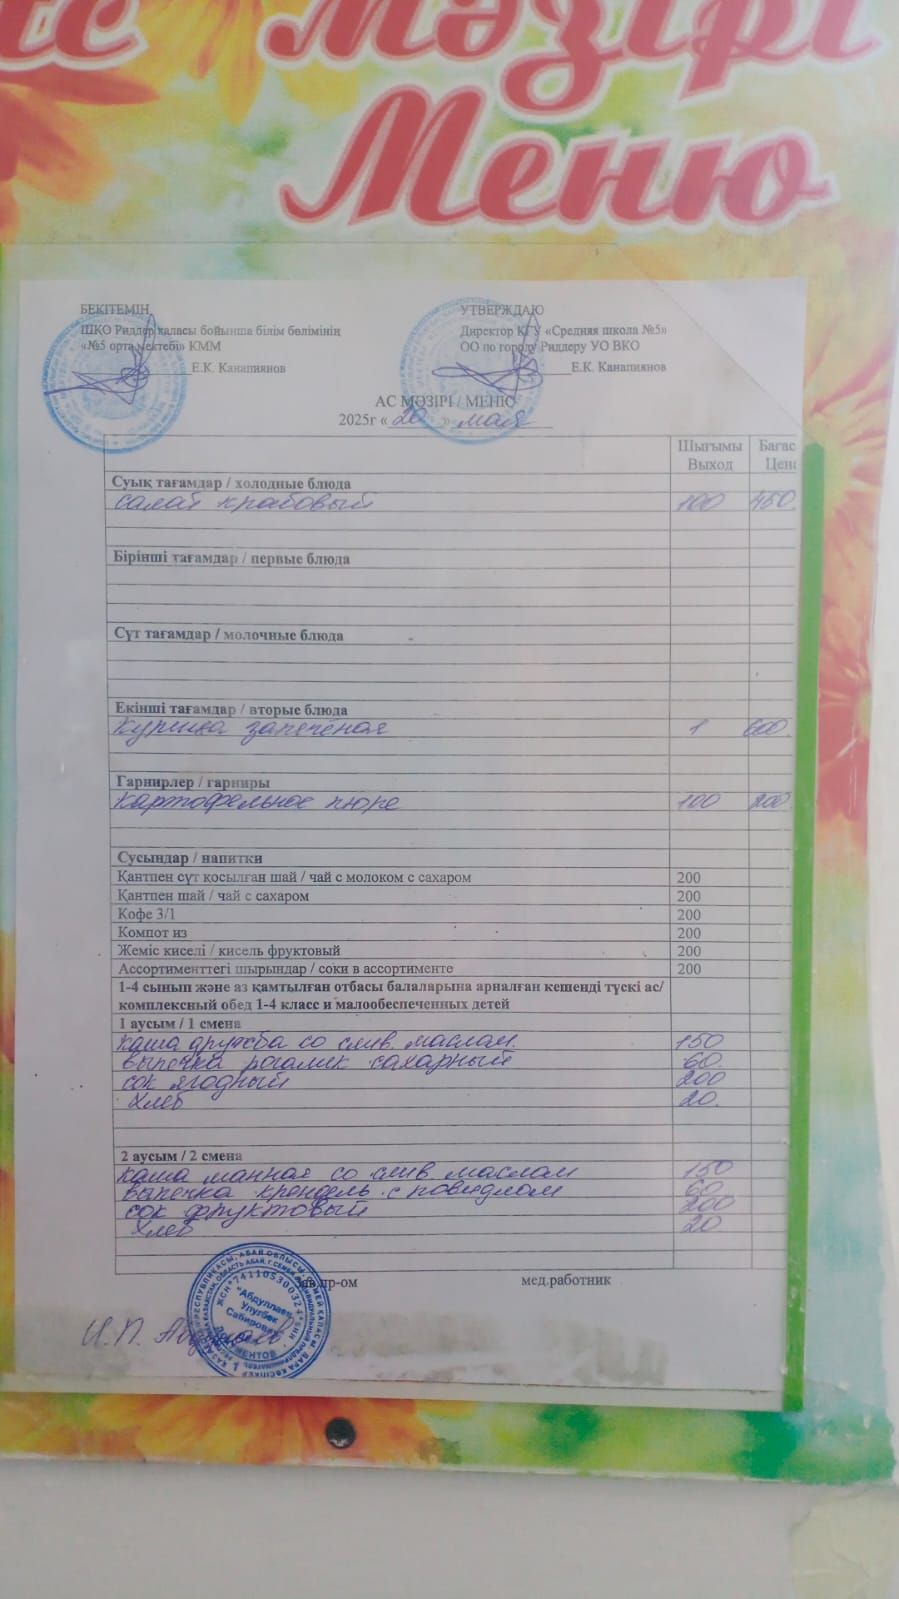 мәзірі
Меню
БЕКІТЕМІН
ШҚО Риддер қаласы бойынша білім бөлімінің
«№5 орта мектебі» КММ
Е.К. Канапиянов
УТВЕРЖДАЮ
Директор КГУ «Средняя школа №5»
ОО по городу Риддеру УО ВКО
Е.К. Канапиянов
АС МӘЗІРІ / МЕНЮ
2025г « 20 » мая
Шығымы Бағас
Выход Цена
Суық тағамдар / холодные блюда
салат крабовый 100 450
Бірінші тағамдар / первые блюда
Сүт тағамдар / молочные блюда
Екінші тағамдар / вторые блюда
курица запечёная 1 600
Гарнирлер / гарниры
картофельное пюре 100 200
Сусындар / напитки
Қантпен сүт қосылған шай / чай с молоком с сахаром 200
Қантпен шай / чай с сахаром 200
Кофе 3/1 200
Компот из 200
Жеміс киселі / кисель фруктовый 200
Ассортименттегі шырындар / соки в ассортименте 200
1-4 сынып және аз қамтылған отбасы балаларына арналған кешенді түскі ас/
комплексный обед 1-4 класс и малообеспеченных детей
1 ауысым / 1 смена
каша дружба со слив. маслом 150
выпечка рогалик сахарный 60
сок ягодный 200
хлеб 20
2 ауысым / 2 смена
каша манная со слив маслом 150
выпечка крендель с повидлом 60
сок фруктовый 200
хлеб 20
зав.пр-ом мед.работник
"Абдуллаев
Улугбек
Сабирович"
ДОКУМЕНТОВ
И.П.